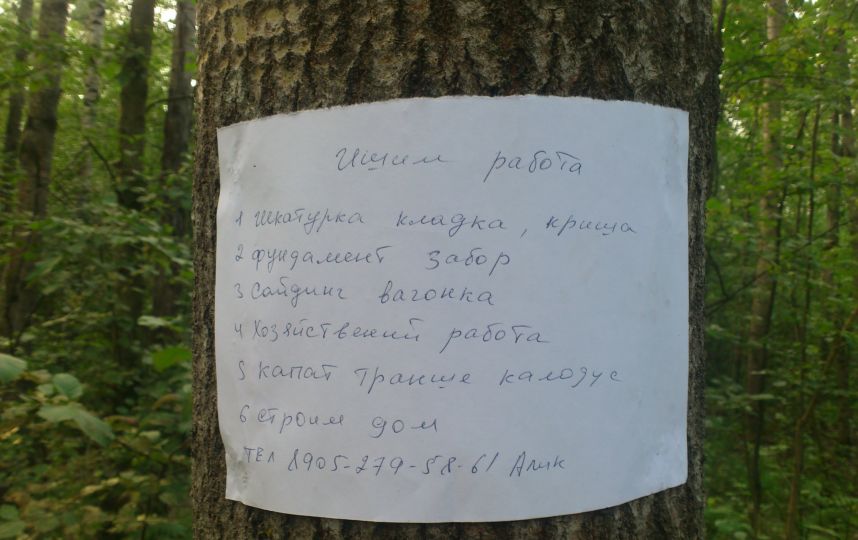 Ищим работа
1 Шкатурка кладка, криша
2 фундамент забор
3 Сайдинг вагонка
4 Хозяйствений работа
5 капат транше калодус
6 строим дом
тел 8905-279-58-61 Алик